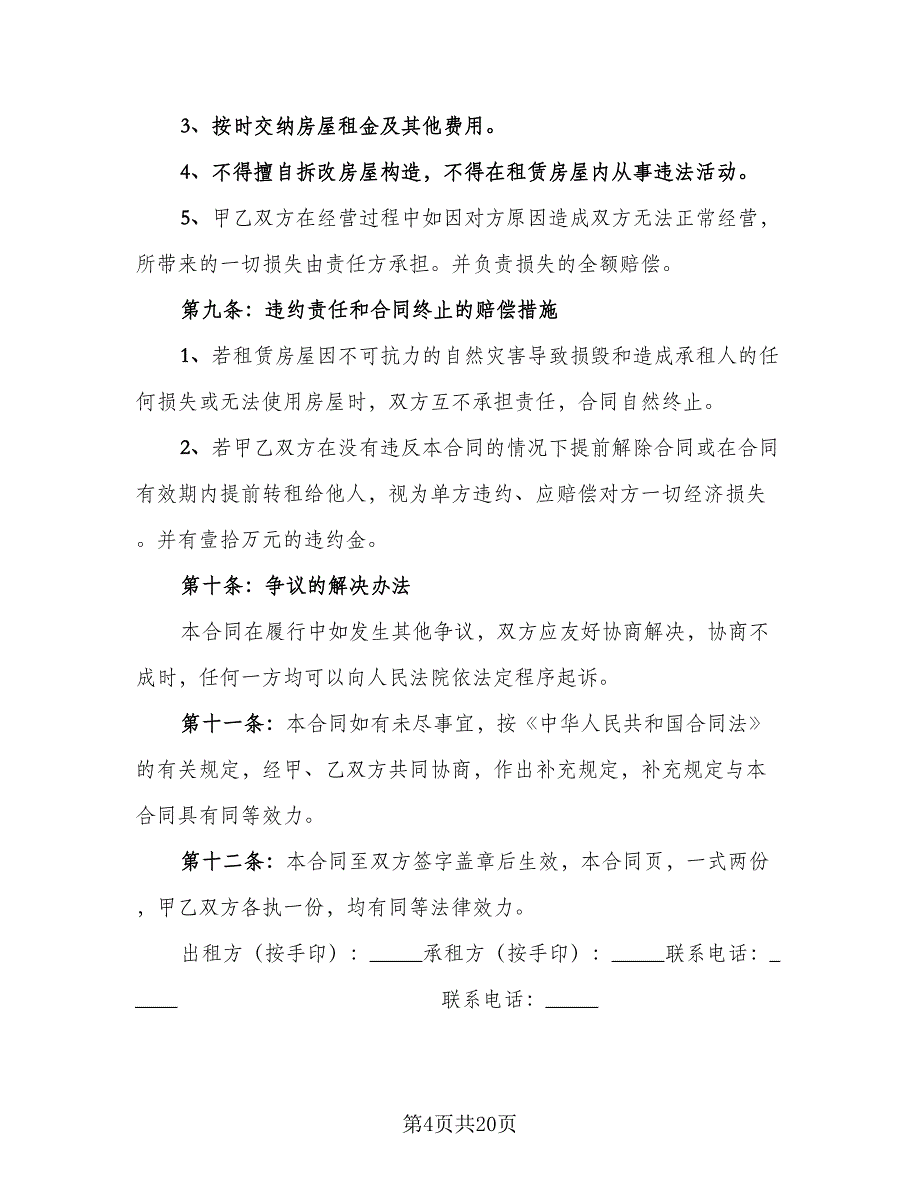 3、按时交纳房屋租金及其他费用。
4、不得擅自拆改房屋构造，不得在租赁房屋内从事违法活动。
5、甲乙双方在经营过程中如因对方原因造成双方无法正常经营，
所带来的一切损失由责任方承担。并负责损失的全额赔偿。
第九条：违约责任和合同终止的赔偿措施
1、若租赁房屋因不可抗力的自然灾害导致损毁和造成承租人的任
何损失或无法使用房屋时，双方互不承担责任，合同自然终止。
2、若甲乙双方在没有违反本合同的情况下提前解除合同或在合同
有效期内提前转租给他人，视为单方违约、应赔偿对方一切经济损失
。并有壹拾万元的违约金。
第十条：争议的解决办法
本合同在履行中如发生其他争议，双方应友好协商解决，协商不
成时，任何一方均可以向人民法院依法定程序起诉。
第十一条：本合同如有未尽事宜，按《中华人民共和国合同法》
的有关规定，经甲、乙双方共同协商，作出补充规定，补充规定与本
合同具有同等效力。
第十二条：本合同至双方签字盖章后生效，本合同页，一式两份
，甲乙双方各执一份，均有同等法律效力。
出租方（按手印）：_____承租方（按手印）：_____联系电话：_
____ 联系电话：_____
第4页共20页